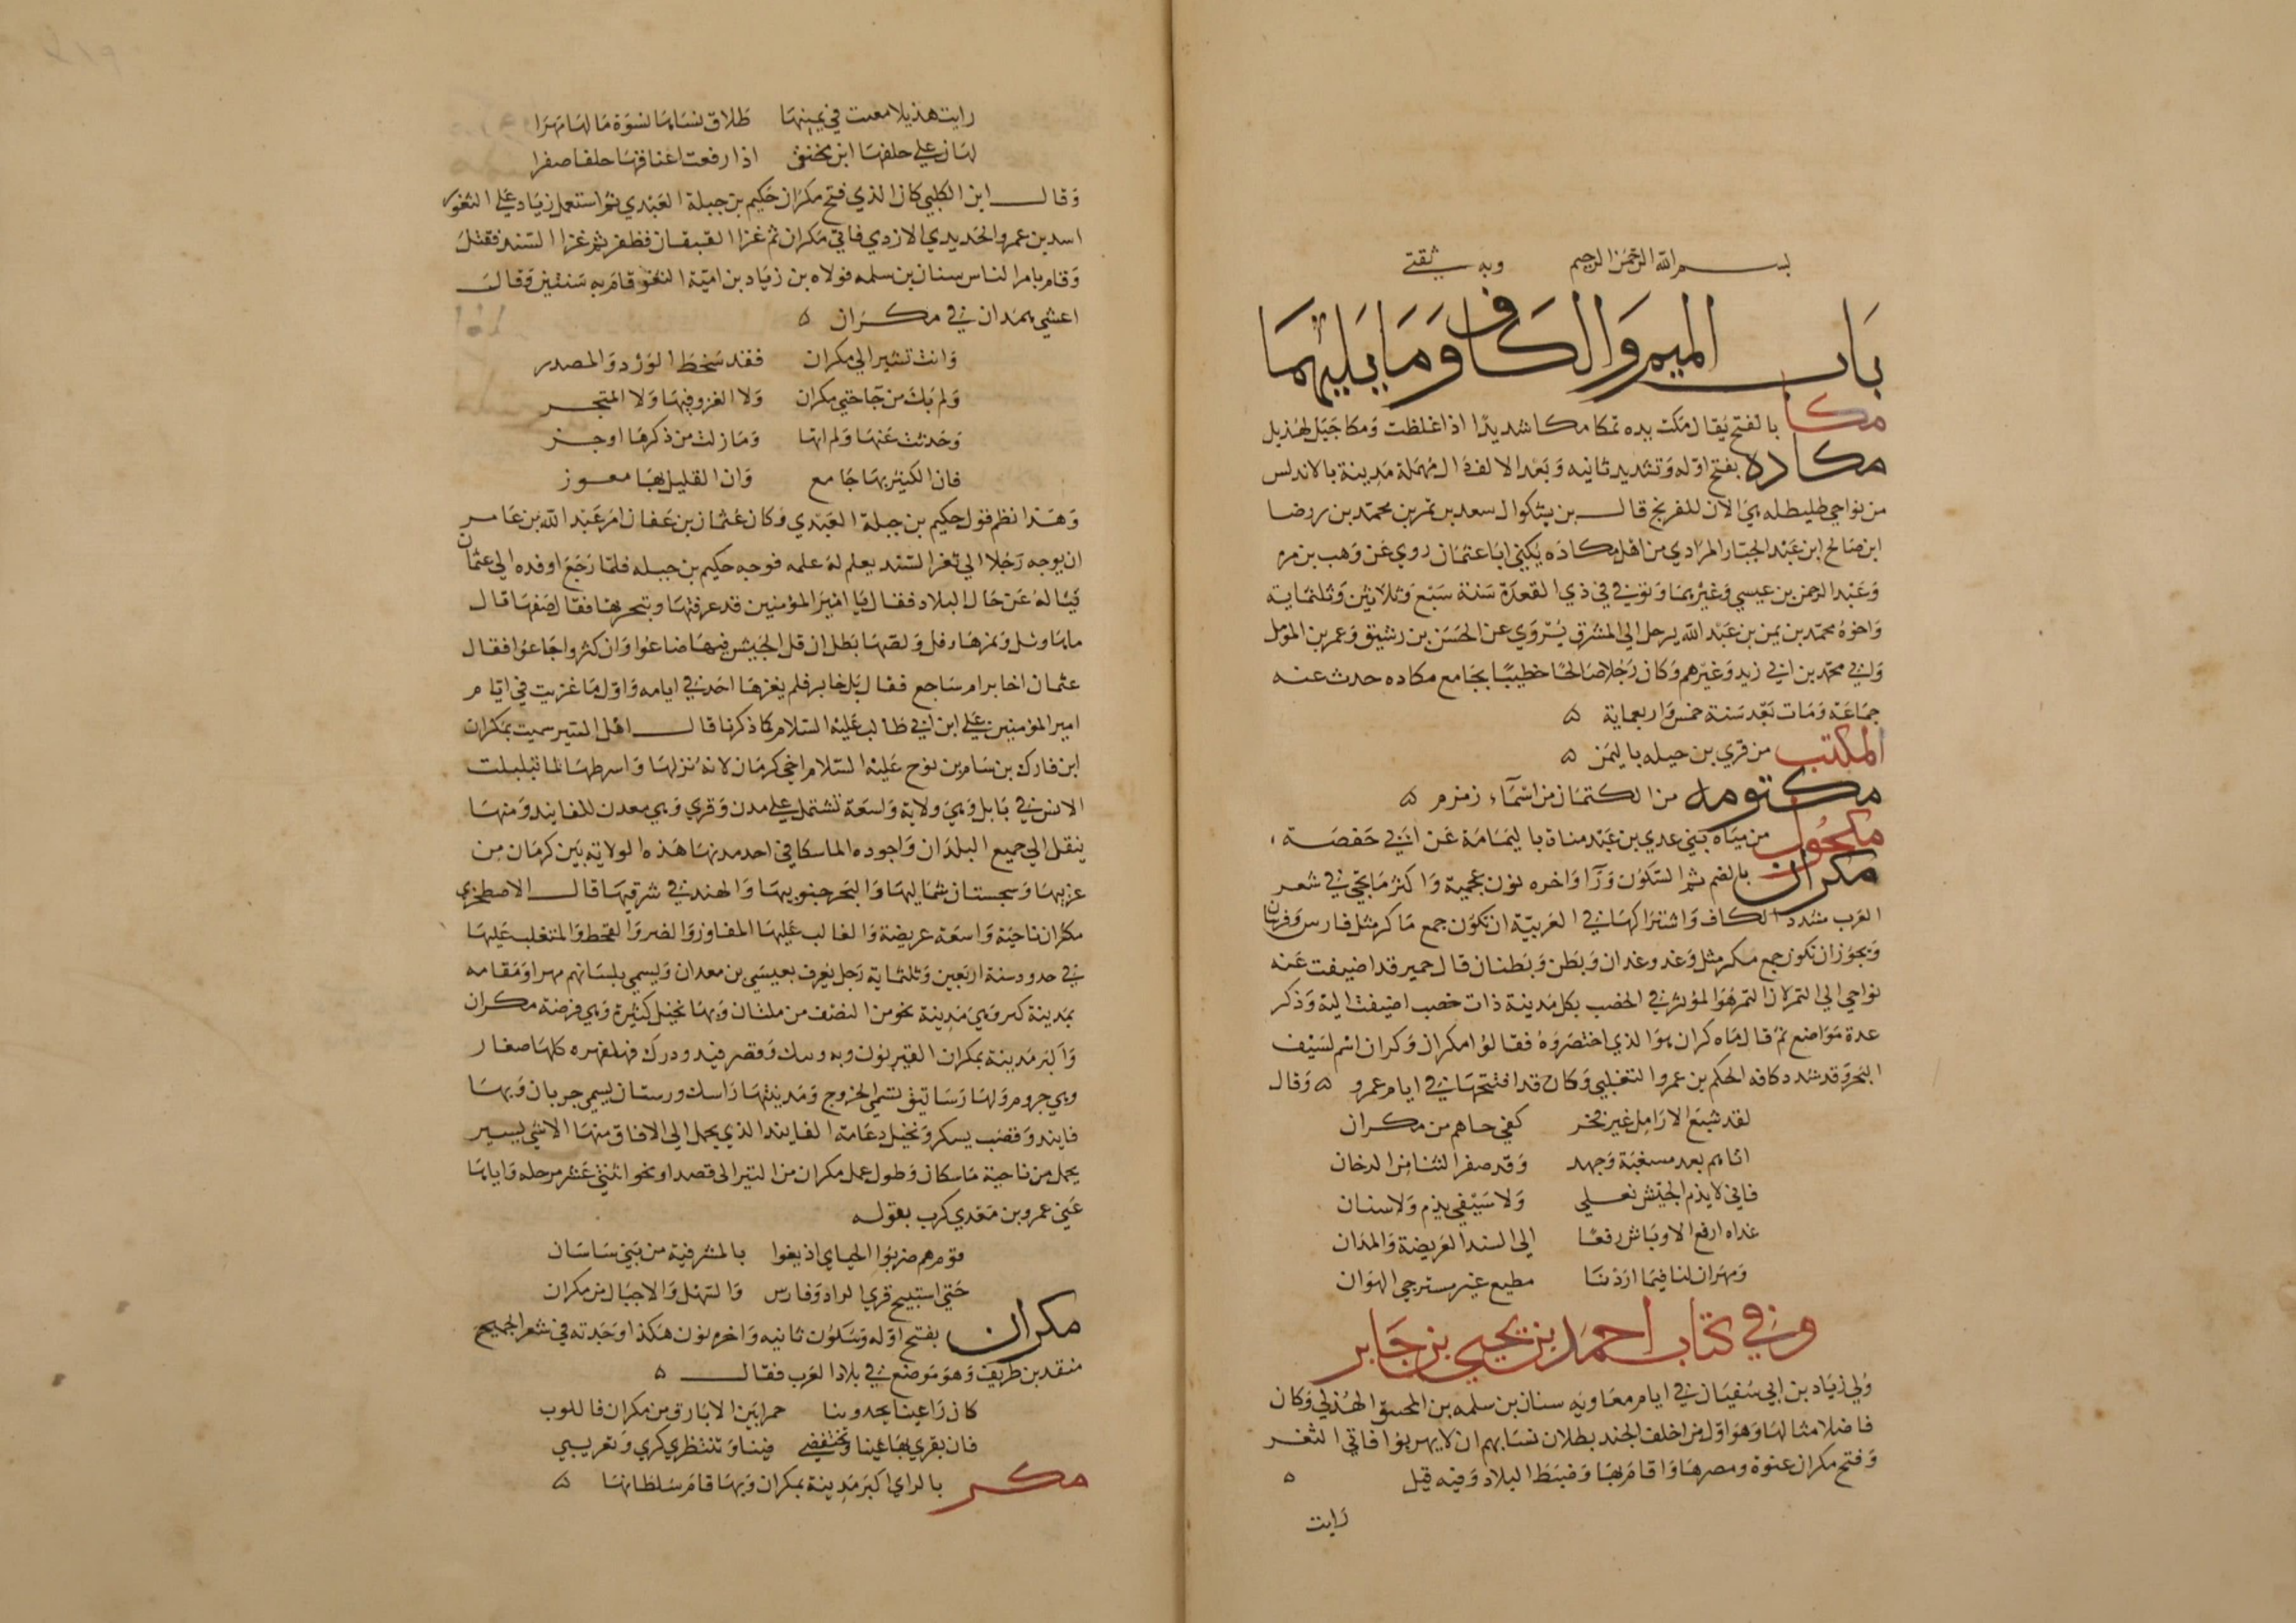 بسم الله الرحمن الرحيم وبه ثقتي
باب الميم والكاف وما يليهما
مكا بالفتح يقال مكت يده تمكا مكا شديدا اذا غلظت ومكا جبل لهذيل
مكاده بفتح اوله وتشديد ثانيه وبعد الالف دال مهملة مدينة بالاندلس
من نواحي طليطله هي الان للفرنج قال بن بشكوال سعد بن يمن بن محمد بن رضا
ابن صالح ابن عبد الجبار المرادي من اهل مكاده يكني ابا عثمان روي عن وهب بن مره
وعبد الرحمن بن عيسي وغيرهما وتوفي في ذي القعدة سنة سبع وثلاثين وثلثماية
واخوه محمد بن يمن بن عبد الله يرحل الي المشرق يروي عن الحسن بن رشيق وعمر بن المومل
وابي محمد بن ابي زيد وغيرهم وكان رجلا صالحا خطيبا بجامع مكاده حدث عنه
جماعة ومات بعد سنة خمس واربعماية ه
المكتب من قري بن جبله باليمن ه
مكتومه من الكتمان من اسماء زمزم ه
مكحول من مياه بني عدي بن عبد مناة باليمامة عن ابي حفصة
مكران بالضم ثم السكون ورا واخره نون عجمية واكثر ما يجي في شعر
العرب مشدد الكاف واشتراكها في العربية ان تكون جمع ماكر مثل فارس وفرسان
ويجوز ان تكون جمع مكر مثل وغد وغدان وبطن وبطنان قال حمير قد اضيفت عنه
نواحي الي القمر لان القمر هو الموثر في الخصب بكل مدينة ذات خصب اضيفت اليه وذكر
عدة مواضع ثم قال ماه كران هو الذي اختصروه فقالوا مكران وكران اسم لسيف
البحر وقد شدد كافه الحكم بن عمرو التغلبي وكان قد افتتحها في ايام عمرو ه وقال
لقد شبع الارامل غير فخر كفي جاهم من مكران
اتاهم بعد مسغبة وجهد وقد صفر الشتا من الدخان
فاني لا يذم الجيش فعلي ولا سيفي يذم ولا سنان
غداه ارفع الاوباش رفعا الي السند العريضة والمدان
ومهران لنا فيما اردنا مطيع غير مسترجي الهوان
وفي كتاب احمد بن يحيي بن جابر
ولي زياد بن ابي سفيان في ايام معاويه سنان بن سلمه بن المحبق الهذلي وكان
فاضلا متالها وهو اول من احلف الجند بطلاق نسايهم ان لا يهربوا فاتي الثغر
وفتح مكران عنوة ومصرها واقام بها وضبط البلاد وفيه قيل ه
رايت
رايت هذيلا معنت في يمينها طلاق نسايها نسوة ما لها مهرا
لهان علي حلفها ابن محنق اذا رفعت اعناقها حلقا صفرا
وقال ابن الكلبي كان الذي فتح مكران حكيم بن جبلة العبدي ثم استعمل زياد علي الثغور
اسد بن عمرو الحديدي الازدي فاتي مكران ثم غزا القيقان فظفر ثم غزا السند فقتل
وقام بامر الناس سنان بن سلمه فولاه بن زياد بن امية الثغر فاقام به سنتين وقال
اعشي همدان في مكران ه
وانت تشير الي مكران فقد سخط الورد والمصدر
ولم يك من حاجتي مكران ولا الغزو فيها ولا المتجر
وحدثت عنها ولم اتها وما زلت من ذكرها اوجر
فان الكثير بها جايع وان القليل بها معوز
وهذا نظم قول حكيم بن جبلة العبدي وكان عثمان بن عفان امر عبد الله بن عامر
ان يوجه رجلا الي ثغر السند يعلم له علمه فوجه حكيم بن جبله فلما رجع اوفده الي عثمان
فساله عن حال البلاد فقال يا امير المؤمنين قد عرفتها وتبحرتها فقال صفها قال
ماها وشل وتمرها دقل ولصها بطل ان قل الجيش فيها ضاعوا وان كثروا جاعوا فقال
عثمان اخابر ام ساجع فقال بل خابر فلم يغزها احد في ايامه واول ما غزيت في ايام
امير المؤمنين علي ابن ابي طالب عليه السلام كما ذكرنا قال اهل السير سميت بمكران
ابن فارك بن سام بن نوح عليه السلام اخي كرمان لانه نزلها واسرطها لما تبلبلت
الالسن في بابل وهي ولاية واسعة تشتمل علي مدن وقري وهي معدن للفانيد ومنها
ينقل الي جميع البلدان واجوده الماسكاني احد مدنها هذه الولاية بين كرمان من
غربيها وسجستان شماليها والبحر جنوبيها والهند في شرقيها قال الاصطخري
مكران ناحية واسعة عريضة والغالب عليها المفاوز والضر والقحط والمتغلب عليها
في حدود سنة اربعين وثلثماية رجل يعرف بعيسي بن معدان ويسمي بلسانهم مهرا ومقامه
بمدينة كيز وهي مدينة نحو من النصف من ملتان وبها نخيل كثيرة وهي فرضة مكران
واكبر مدينة بمكران القيربون وبه وبند وقصر قند ودرك فهلفهره كلها صغار
وهي جروم ولها رساتيق تسمي الخروج ومدينتها راسك ورستاق يسمي جربان وبها
فانيد وقصب سكر ونخيل وعامة الفانيد الذي يحمل الي الافاق منها الا شي يسير
يحمل من ناحية ماسكان وطول عمل مكران من التيز الي قصدار نحو اثني عشر مرحله واياها
عني عمرو بن معدي كرب بقوله
قوم هم ضربوا الجبابر اذ بغوا بالمشرفية من بني ساسان
حتي استبيح قري السواد وفارس والسهل والاجبال من مكران
مكران بفتح اوله وسكون ثانيه واخره نون هكذا وجدته في شعر الجميح
منقذ بن طريف وهو موضع في بلاد العرب فقال ه
كان راعينا يحدو بنا حمرا بين الابارق من مكران فاللوب
فان تقري بها عينا وتختفضي فينا وتنتظري كري وتغريبي
مكر بالزاي اكبر مدينة بمكران وبها قام سلطانها ه